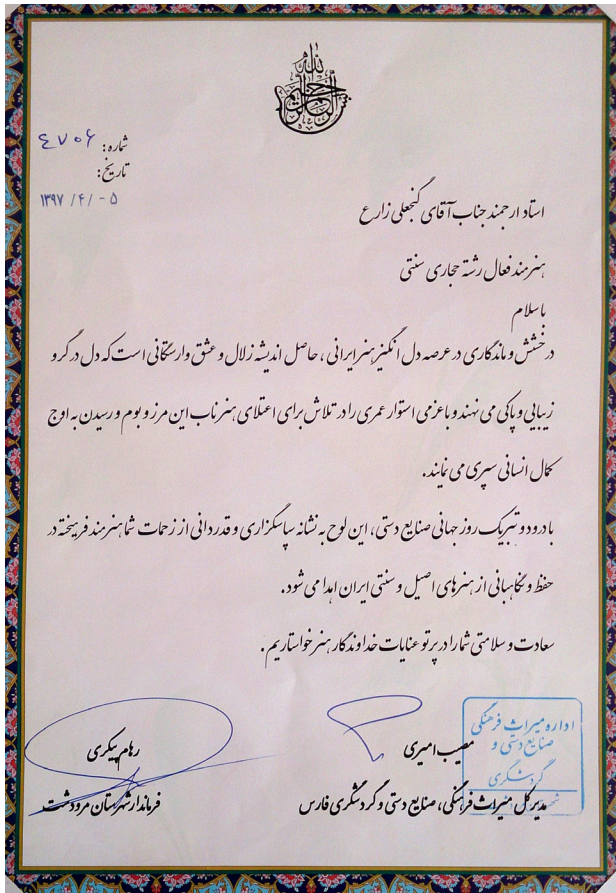 بسم الله الرحمن الرحیم
شماره: ٤٧٠۶
تاریخ:
۱۳۹۷/۴/۰۵
استاد ارجمند جناب آقای گنجعلی زارع
هنرمند فعال رشته حجاری سنتی
باسلام
درخشش و ماندگاری در عرصه دل انگیز هنر ایرانی، حاصل اندیشه زلال و عشق وارستگانی است که دل در گرو
زیبایی و پاکی می نهند و با عزمی استوار عمری را در تلاش برای اعتلای هنر ناب این مرز و بوم و رسیدن به اوج
کمال انسانی سپری می نمایند.
با درود و تبریک روز جهانی صنایع دستی، این لوح به نشانه سپاسگزاری و قدردانی از زحمات شما هنرمند فرهیخته در
حفظ و نگاهبانی از هنرهای اصیل و سنتی ایران اهدا می شود.
سعادت و سلامتی شما را در پرتو عنایات خداوندگار هنر خواستاریم.
اداره میراث فرهنگی
صنایع دستی و
گردشگری
مصیب امیری
مدیر کل میراث فرهنگی، صنایع دستی و گردشگری فارس
رهام پیکری
فرماندار شهرستان مرودشت